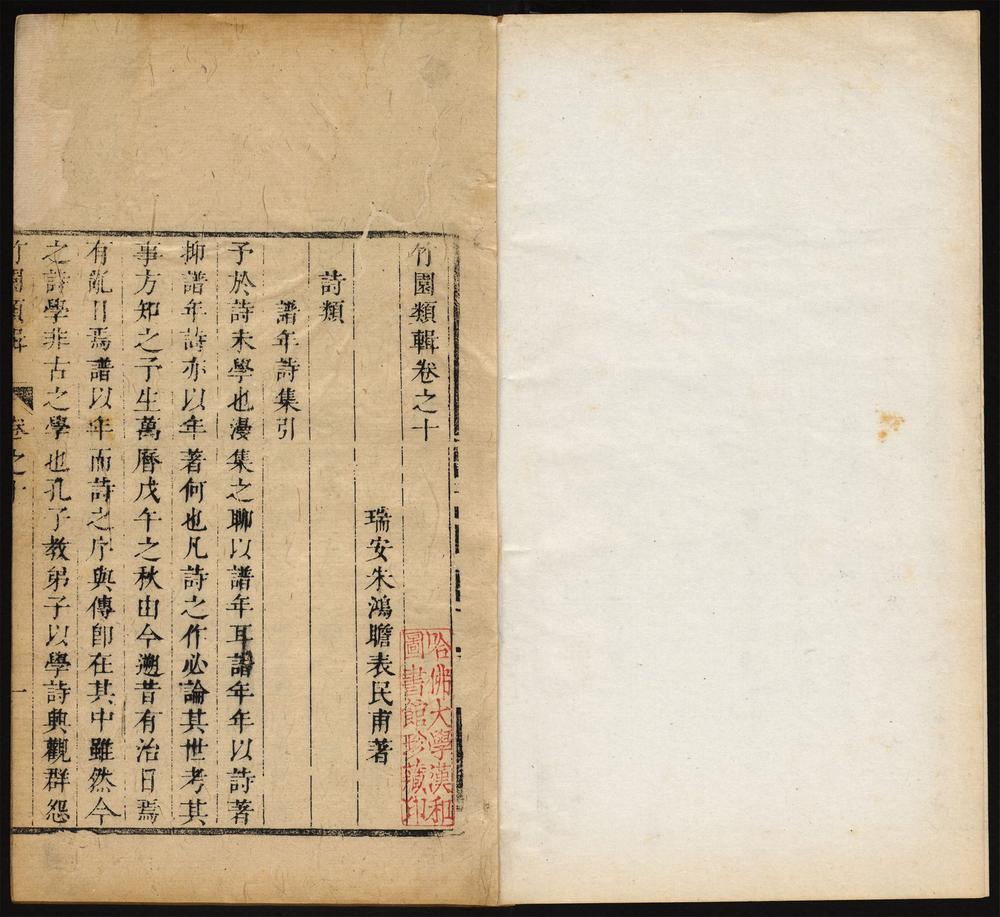 竹園類輯卷之十
瑞安朱鴻瞻表民甫著
詩類
譜年詩集引
予於詩未學也漫集之聊以譜年耳譜年年以詩著
抑譜年詩亦以年著何也凡詩之作必論其世考其
事方知之予生萬曆戊午之秋由今遡昔有治日焉
有亂日焉譜以年而詩之序與傳卽在其中雖然今
之詩學非古之學也孔子教弟子以學詩興觀群怨
竹園類輯 卷之十 一
哈佛大學漢和
圖書館珍藏印